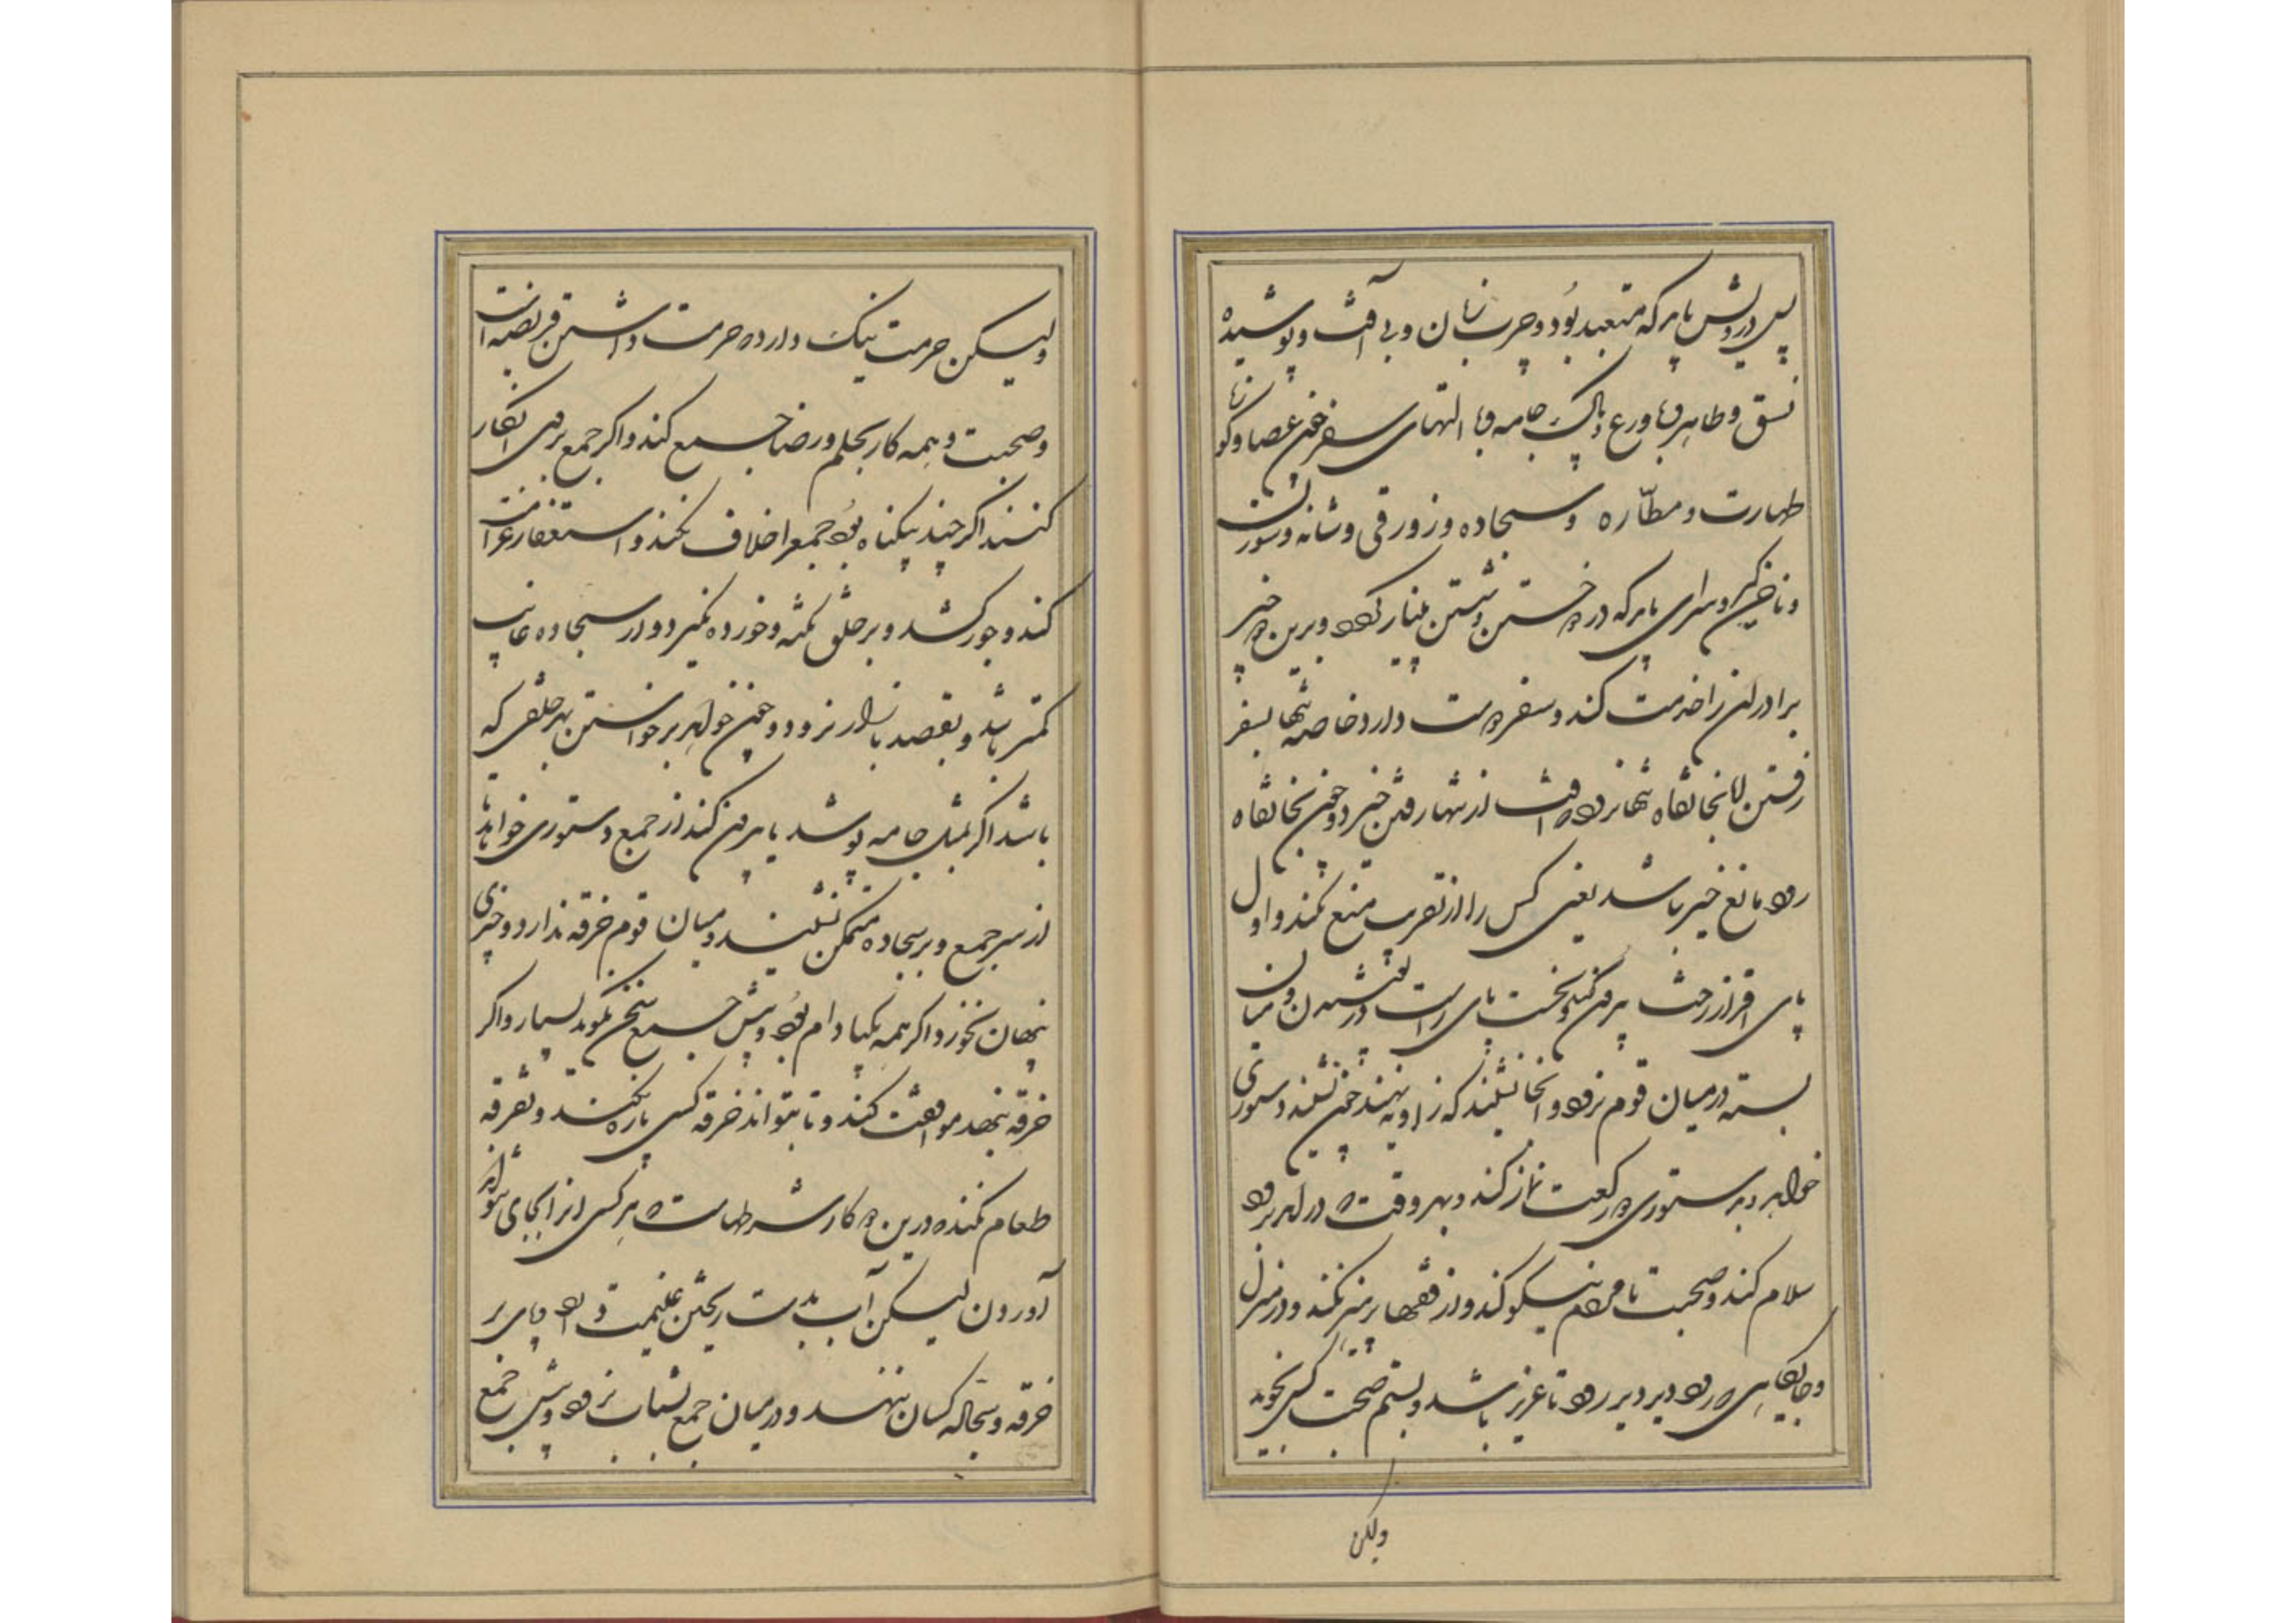 پس درویش باید که متعبد بود و چرب زبان و بی آفت و پوشیده
فسق و طاهر با ورع و پاک جامه و با التهای سفر چون عصا و کو
طهارت و مطاره و سجاده و زورقی و شانه و سوزن
و ناخن گیر و سرای باید که در خستن و شستن بی نیاز بود و برین چیز
برادران را خدمت کند و سفر دوست دارد خاصه تنها بسفر
رفتن اما بخانقاه تنها نرود که آفت از تنها رفتن خیزد و چون بخانقاه
رود مانع خیر باشد یعنی کس را از تقرب منع نکند و اول
پای افزار از چپ بیرون کند و نخست پای راست در کفش و میان
بسته در میان قوم نرود و آنجا نشیند که زاویه نهند چون نشیند دستوری
خواهد و بدستوری دو رکعت نماز کند و بهر وقت که در آید و برود
سلام کند و صحبت با مردم نیکو کند و از فقها پرهیز نکند و در منزل
و جایگاهی که رود دیر دیر رود تا عزیز باشد و بستم صحبت کس نجوید
ولکن
ولیکن حرمت نیک دارد که حرمت داشتن فریضه است
و صحبت و همه کار بحلم و رضا جمع کند و اگر جمع بر وی انکار
کنند اگر چند بیگناه بود جمع را خلاف نکند و استغفار و غرامت
کند و جور کشد و بر خلق نکته و خورده نگیرد و از سجاده غایب
کمتر باشد و بقصد بازار نرود و چون خواهد برخواستن بهر خلقی که
باشد اگر بمثل جامه پوشد یا بیرون کند از جمع دستوری خواهد یا
از سر جمع و بر سجاده متمکن نشیند و میان قوم خرقه ندارد و چیزی
پنهان نخورد اگر همه یکبادام بود و پیش جمع سخن نگوید بسیار و اگر
خرقه بنهد موافقت کند و تا بتواند خرقه کسی پاره نکند و تفرقه
طعام نکند که درین دو کار شرطهاست که هر کسی آنرا بجای نتواند
آوردن لیکن آب بدست ریختن غنیمت داند و پای بر
خرقه و سجاده کسان ننهد و در میان جمع بشتاب نرود و پیش جمع